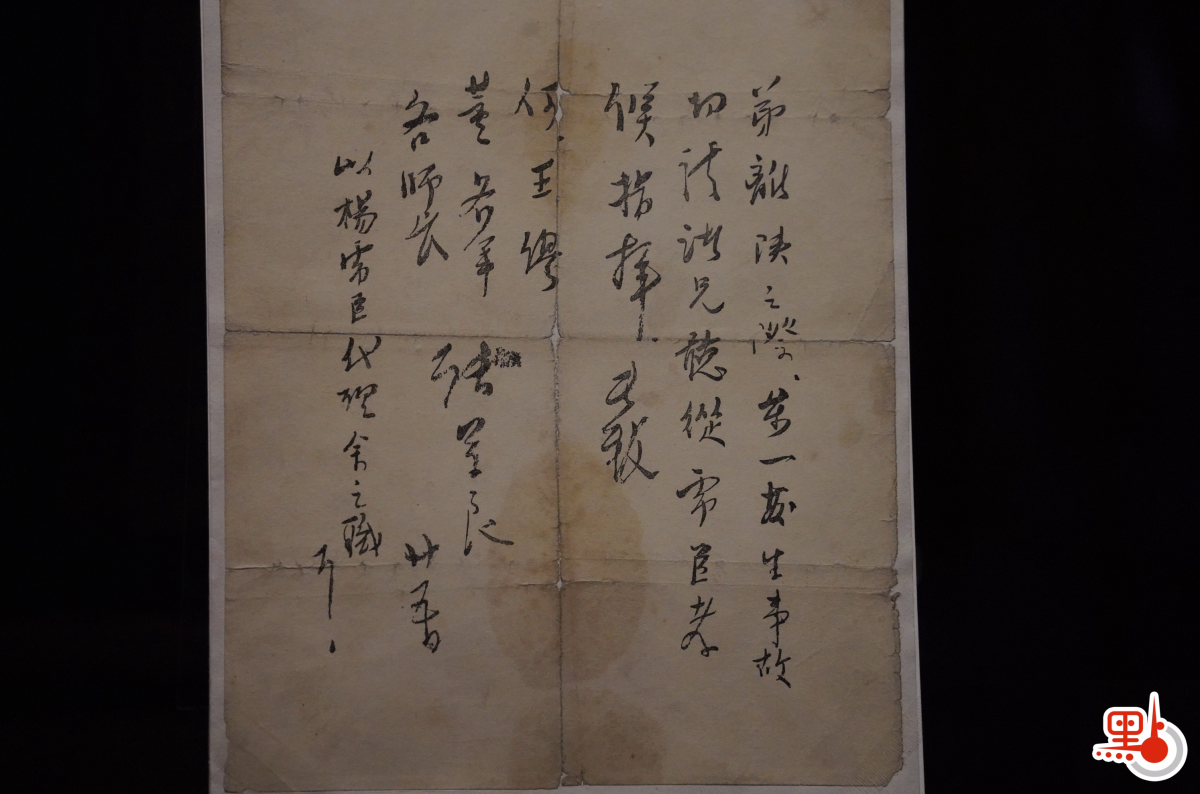 弟離陝之際，萬一發生事故
切請諸兄聽從虎臣孝
侯指揮，此致
何、王、繆、
董各軍
各師長
張學良
廿五日
以楊虎臣代理余之職
即，
點